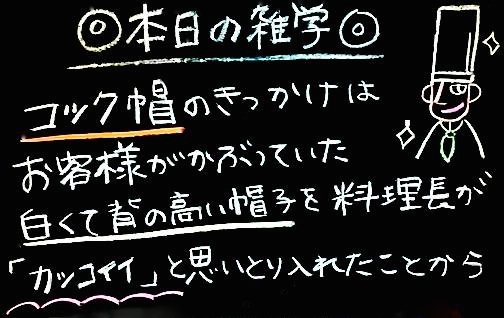 ◎本日の雑学◎
コック帽のきっかけは
お客様がかぶっていた
白くて背の高い帽子を料理長が
「カッコイイ」と思いとり入れたことから